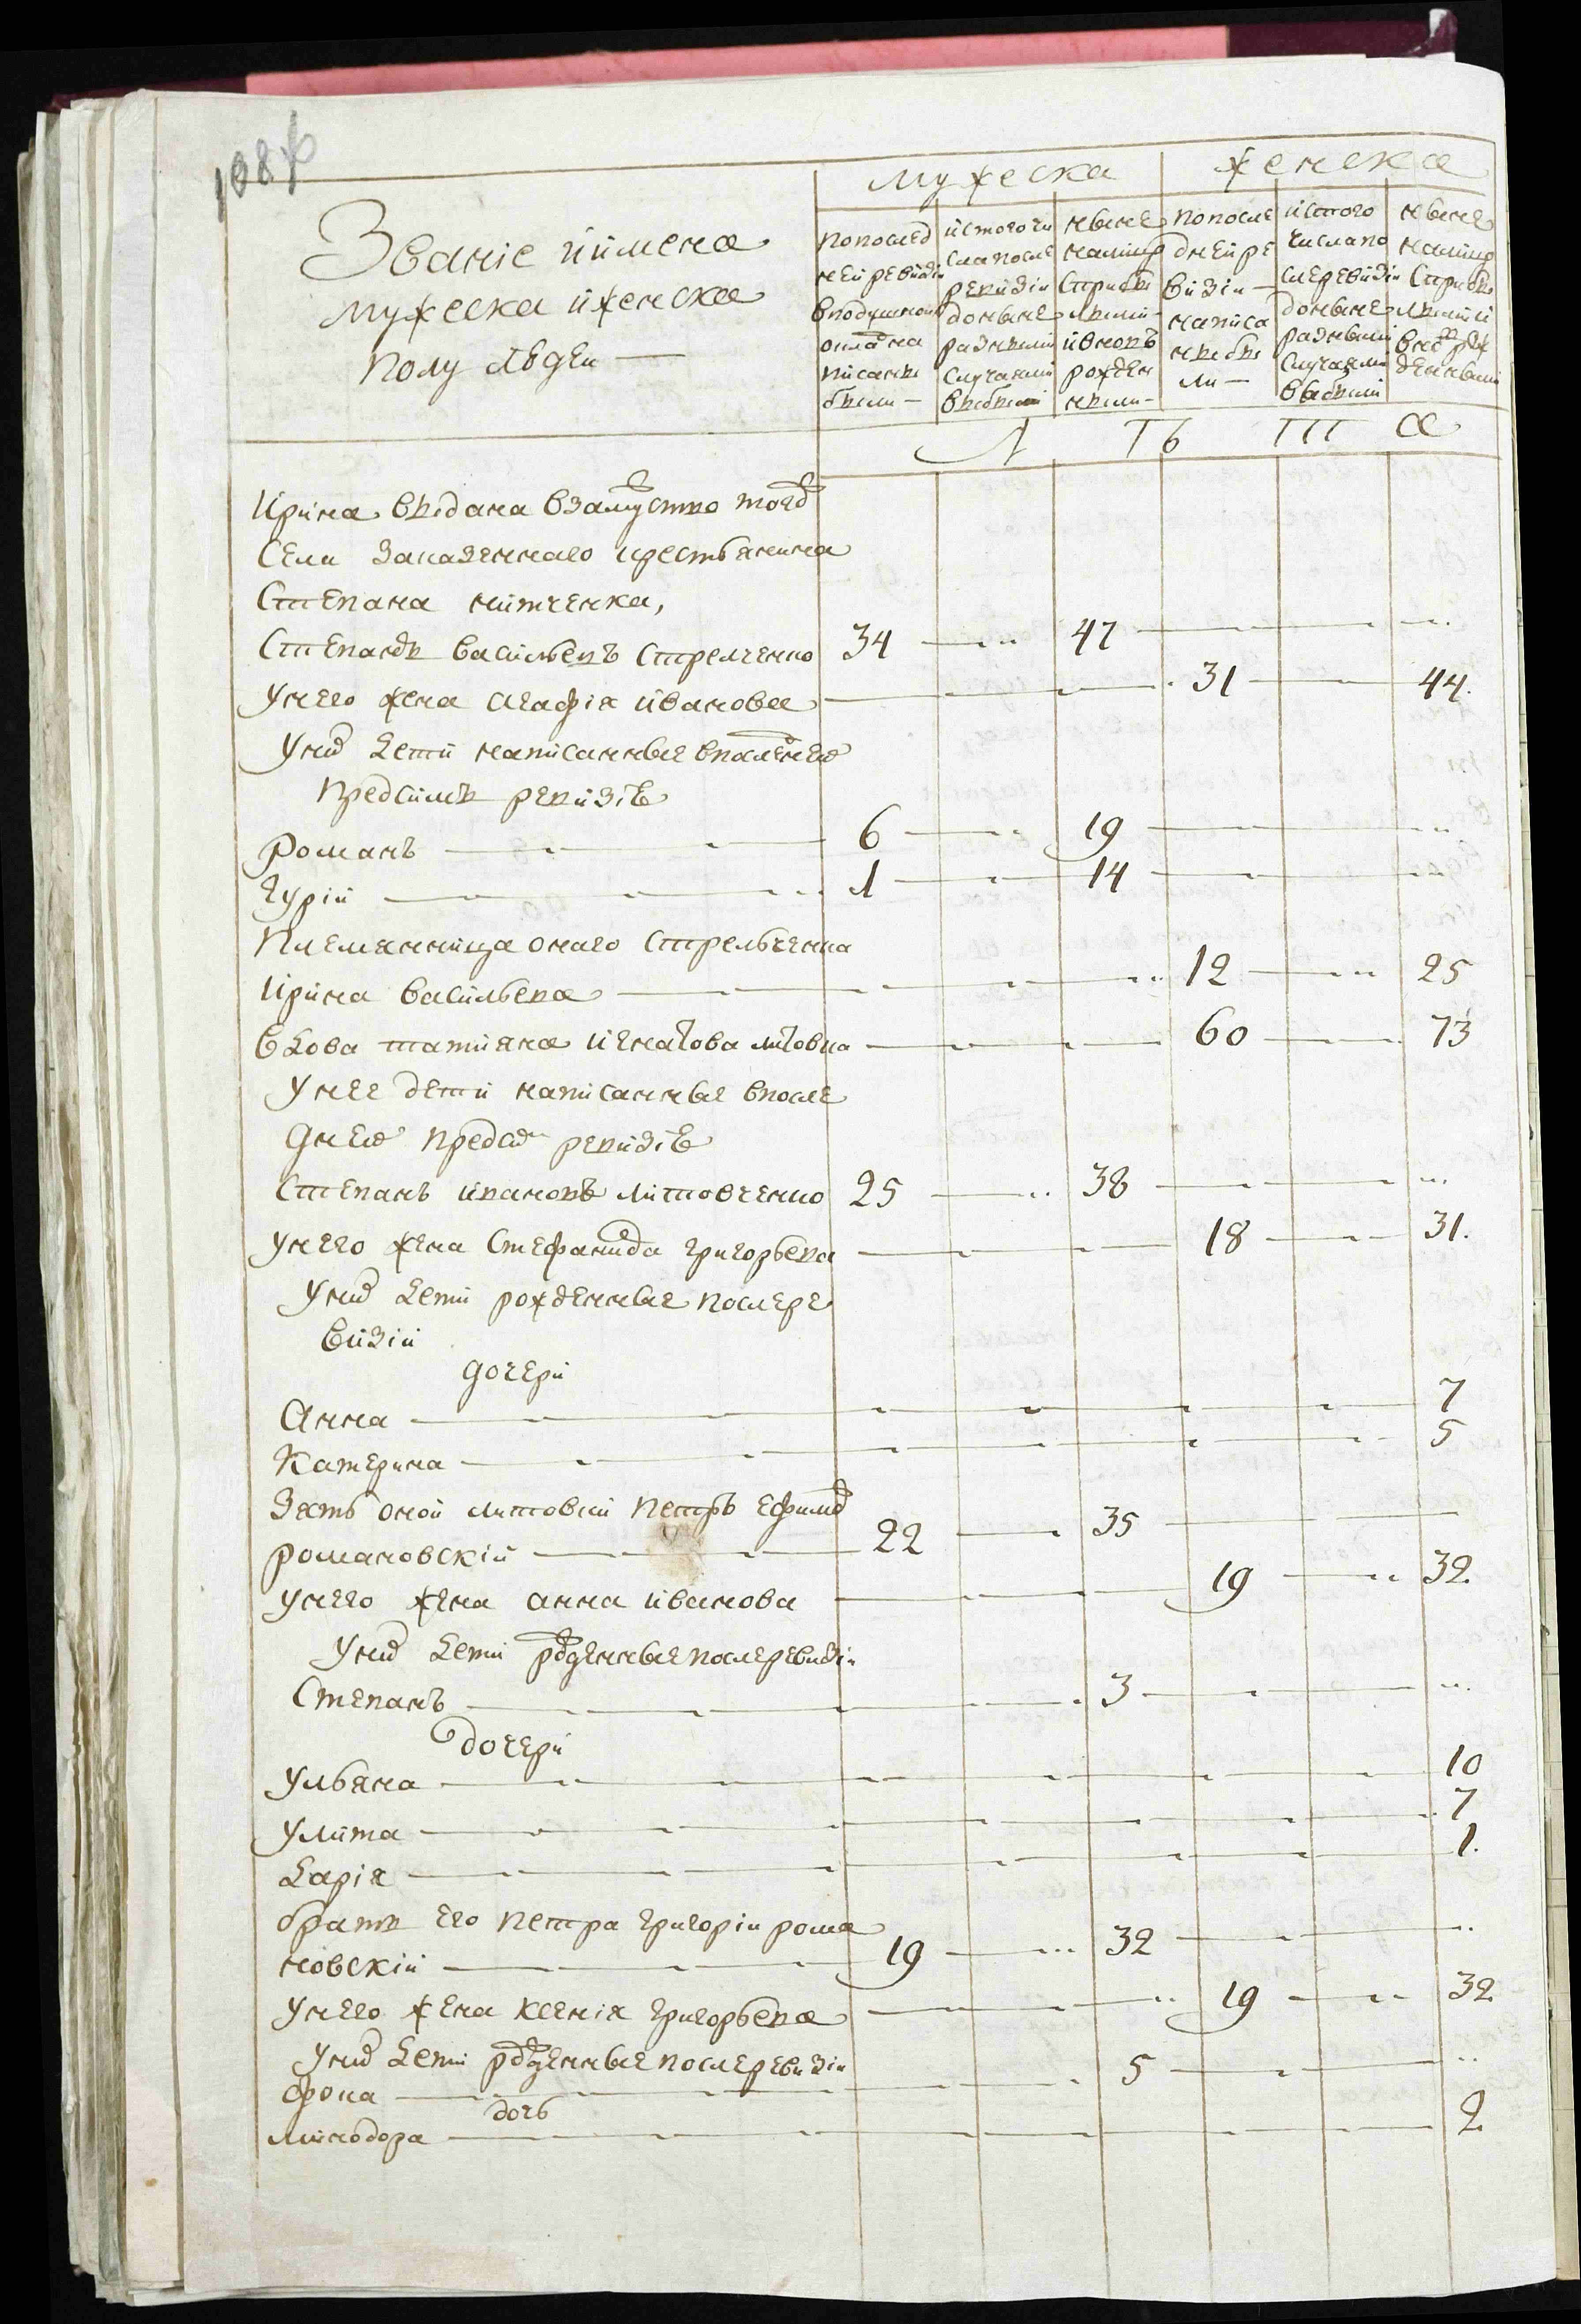 108
Званіе и имена
мужеска и женска
полу людеи —
мужеска
женска
по послед
ней ревизіи
в подушномъ
окладе на
писаны
были —
и стого чи
сла после
ревизіи
до ныне
разными
случаями
выбыли
и ныне
налицо
с прибы
лыми
и вновь
рожден
ными —
по после
дней ре
визіи —
написа
ны бы
ли —
и стого
числа по
сле ревизіи
до ныне
разными
случаями
выбыли
и ныне
налицо
с прибы
лыми и
вновь рож
денными
Л Ѣ Т А
Ирина выдана взамужство тогож
села заказенного крестьянина
Степана нитченка,
Степанъ васильевъ стрелченко 34 — 47 — —
у него жена агафія иванова — 31 — 44.
у них дети написанные впоследнеи
предсимъ ревизіи
романъ — 6 — 19 —
гурій — 1 — 14 —
племянница оного стрельченка
Ирина васильева — 12 — 25
вдова татияна игнатова литовка — 60 — 73
у нее дети написанные в после
днеи предсим ревизіи
степанъ ивановъ литовченко 25 — 38 —
у него жена стефанида григорьева — 18 — 31.
у них дети рожденные после ре
визіи
дочери
Анна — 7
Катерина — 5
Зять оной литовки петръ ефимов
романовскій — 22 — 35 —
у него жена анна иванова — 19 — 32.
у них дети рожденные после ревизіи
Степанъ — 3 —
дочери
ульяна — 10
улита — 7
дарія — 1.
братъ его петра григоріи рома
новскій — 19 — 32 —
у него жена ксенія григорьева — 19 — 32
у них дети рожденные после ревизіи
фока — 5 —
дочь
минодора — 2